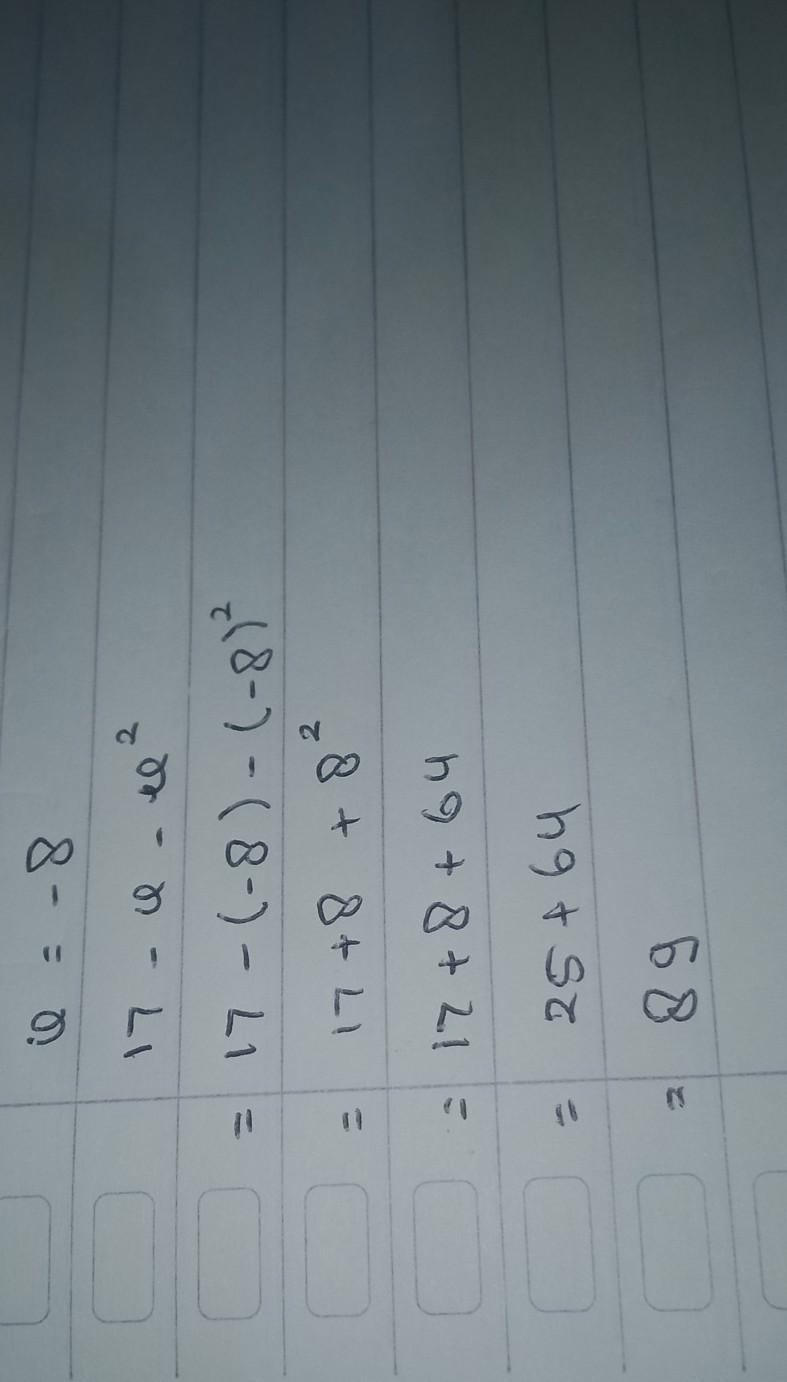 w = -8
17 - w - w²
= 17 - (-8) - (-8)²
= 17 + 8 + 8²
= 17 + 8 + 64
= 25 + 64
= 89